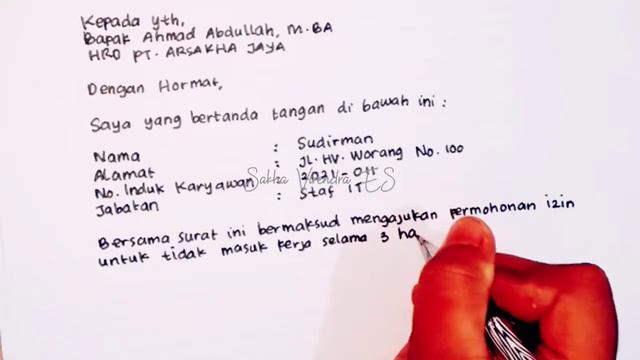 Kepada yth,
Bapak Ahmad Abdullah, M.BA
HRD PT. ARSAKHA JAYA
Dengan Hormat,
Saya yang bertanda tangan di bawah ini :
Nama : Sudirman
Alamat : JL. HV. Worang No. 100
No. Induk Karyawan : 2021-011
Jabatan : Staf IT
Sakha Virendra ES
Bersama surat ini bermaksud mengajukan permohonan izin
untuk tidak masuk kerja selama 3 ha